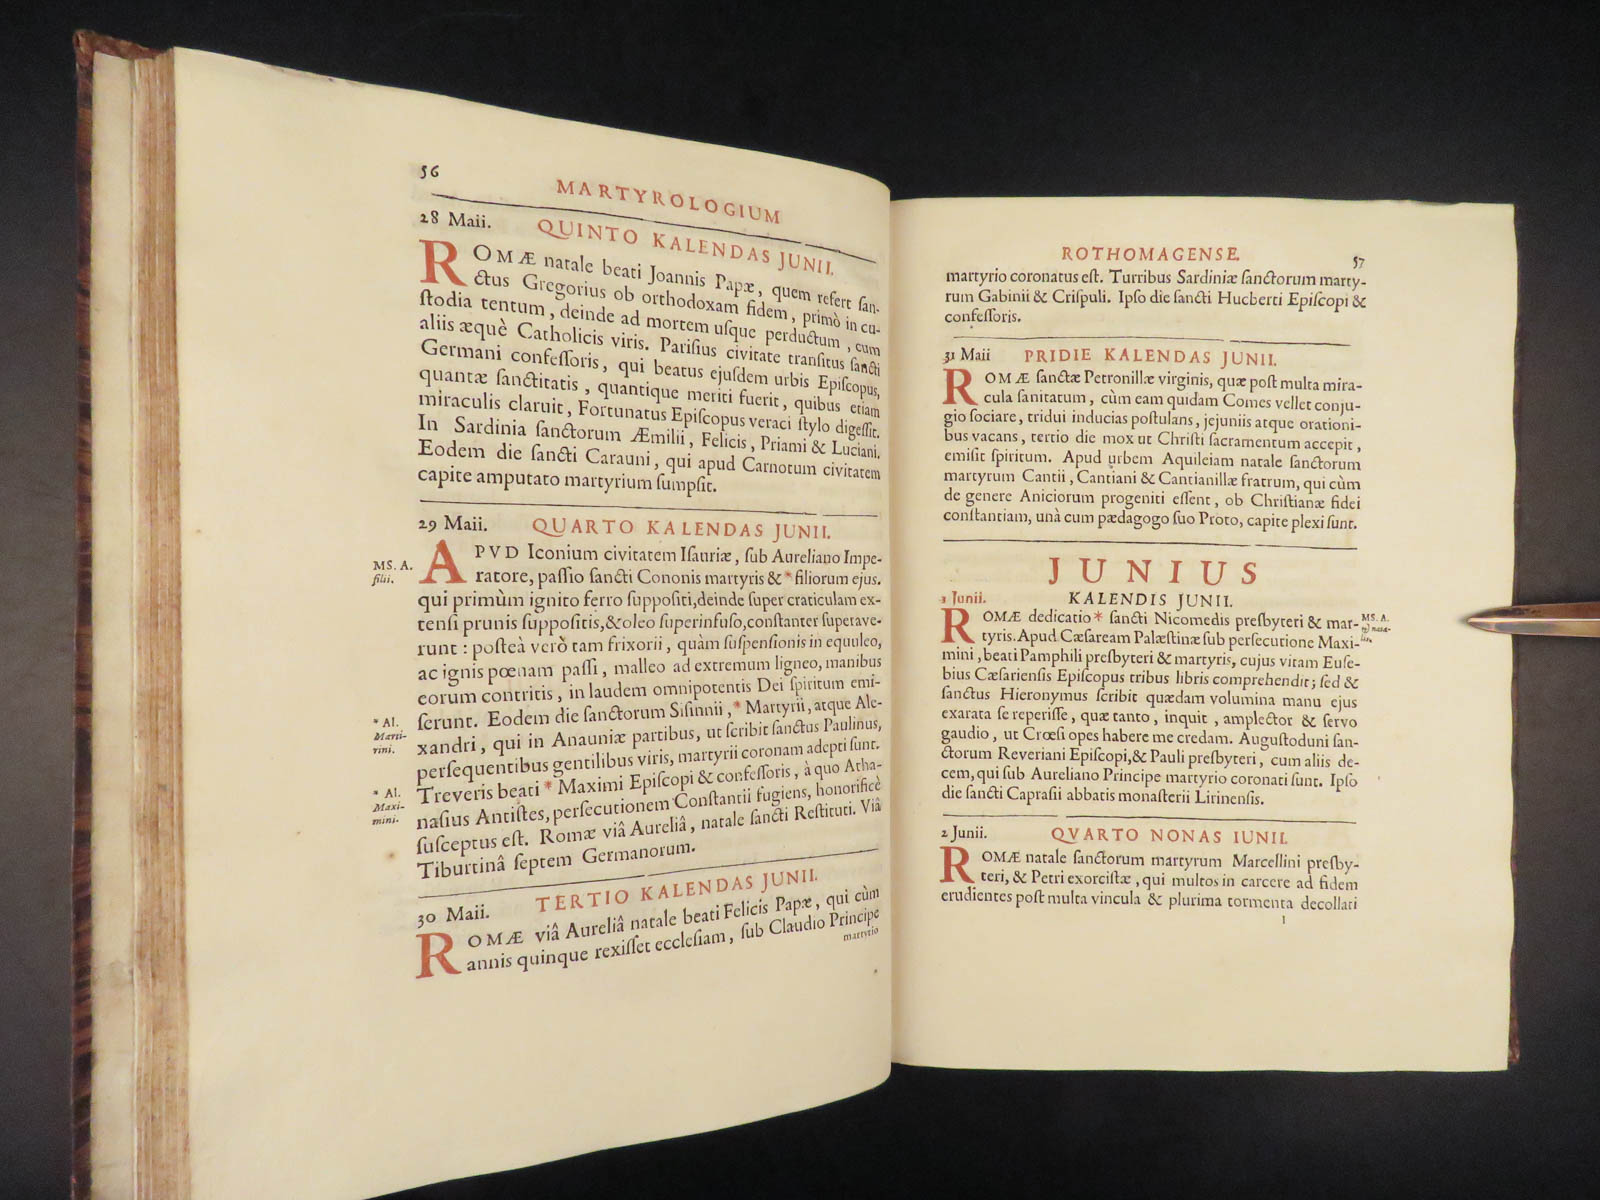 56
MARTYROLOGIUM
28 Maii. QUINTO KALENDAS JUNII.
ROMÆ natale beati Joannis Papæ, quem refert ſan-
ctus Gregorius ob orthodoxam fidem, primò in cu-
ſtodia tentum, deinde ad mortem uſque perductum, cum
aliis æquè Catholicis viris. Pariſius civitate tranſitus ſancti
Germani confeſſoris, qui beatus ejuſdem urbis Epiſcopus,
quantæ ſanctitatis, quantique meriti fuerit, quibus etiam
miraculis claruit, Fortunatus Epiſcopus veraci ſtylo digeſſit.
In Sardinia ſanctorum Æmilii, Felicis, Priami & Luciani.
Eodem die ſancti Carauni, qui apud Carnotum civitatem
capite amputato martyrium ſumpſit.
29 Maii. QUARTO KALENDAS JUNII.
APVD Iconium civitatem Iſauriæ, ſub Aureliano Impe-
MS. A.
filii.
ratore, paſſio ſancti Cononis martyris & * filiorum ejus.
qui primùm ignito ferro ſuppoſiti, deinde ſuper craticulam ex-
tenſi prunis ſuppoſitis, & oleo ſuperinfuſo, conſtanter ſuperave-
runt : poſteà verò tam frixorii, quàm ſuſpenſionis in equuleo,
ac ignis pœnam paſſi, malleo ad extremum ligneo, manibus
eorum contritis, in laudem omnipotentis Dei ſpiritum emi-
* Al.
Marti-
rini.
ſerunt. Eodem die ſanctorum Siſinnii, * Martyrii, atque Ale-
xandri, qui in Anauniæ partibus, ut ſcribit ſanctus Paulinus,
perſequentibus gentilibus viris, martyrii coronam adepti ſunt.
* Al.
Maxi-
mini.
Treveris beati * Maximi Epiſcopi & confeſſoris, à quo Atha-
naſius Antiſtes, perſecutionem Conſtantii fugiens, honorificè
ſuſceptus eſt. Romæ viâ Aureliâ, natale ſancti Reſtituti. Viâ
Tiburtinâ ſeptem Germanorum.
30 Maii. TERTIO KALENDAS JUNII.
ROMÆ viâ Aureliâ natale beati Felicis Papæ, qui cùm
annis quinque rexiſſet eccleſiam, ſub Claudio Principe
martytio
ROTHOMAGENSE. 57
martyrio coronatus eſt. Turribus Sardiniæ ſanctorum marty-
rum Gabinii & Criſpuli. Ipſo die ſancti Hucberti Epiſcopi &
confeſſoris.
31 Maii PRIDIE KALENDAS JUNII.
ROMÆ ſanctæ Petronillæ virginis, quæ poſt multa mira-
cula ſanitatum, cùm eam quidam Comes vellet conju-
gio ſociare, tridui inducias poſtulans, jejuniis atque orationi-
bus vacans, tertio die mox ut Chriſti ſacramentum accepit,
emiſit ſpiritum. Apud urbem Aquileiam natale ſanctorum
martyrum Cantii, Cantiani & Cantianillæ fratrum, qui cùm
de genere Aniciorum progeniti eſſent, ob Chriſtianæ fidei
conſtantiam, unà cum pædagogo ſuo Proto, capite plexi ſunt.
JUNIUS
1 Junii. KALENDIS JUNII.
ROMÆ dedicatio * ſancti Nicomedis preſbyteri & mar-
MS. A.
tyris. Apud Cæſaream Palæſtinæ ſub perſecutione Maxi-
mini, beati Pamphili preſbyteri & martyris, cujus vitam Euſe-
bius Cæſarienſis Epiſcopus tribus libris comprehendit; ſed &
ſanctus Hieronymus ſcribit quædam volumina manu ejus
exarata ſe reperiſſe, quæ tanto, inquit, amplector & ſervo
gaudio, ut Crœſi opes habere me credam. Auguſtoduni ſan-
ctorum Reveriani Epiſcopi, & Pauli preſbyteri, cum aliis de-
cem, qui ſub Aureliano Principe martyrio coronati ſunt. Ipſo
die ſancti Capraſii abbatis monaſterii Lirinenſis.
2 Junii. QVARTO NONAS IUNII.
ROMÆ natale ſanctorum martyrum Marcellini preſby-
teri, & Petri exorciſtæ, qui multos in carcere ad fidem
erudientes poſt multa vincula & plurima tormenta decollati
I